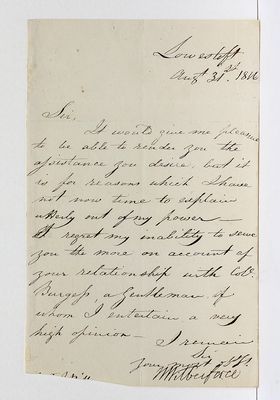 Lowestoft
Augt 31st. 1816
Sir,
It would give me pleasure
to be able to render you the
assistance you desire, but it
is for reasons which I have
not now time to explain
utterly out of my power —
I regret my inability to serve
you the more on account of
your relationship with Col.
Burgess, a Gentleman, of
whom I entertain a very
high opinion — 
I remain
Sir
your most obt.
W Wilberforce